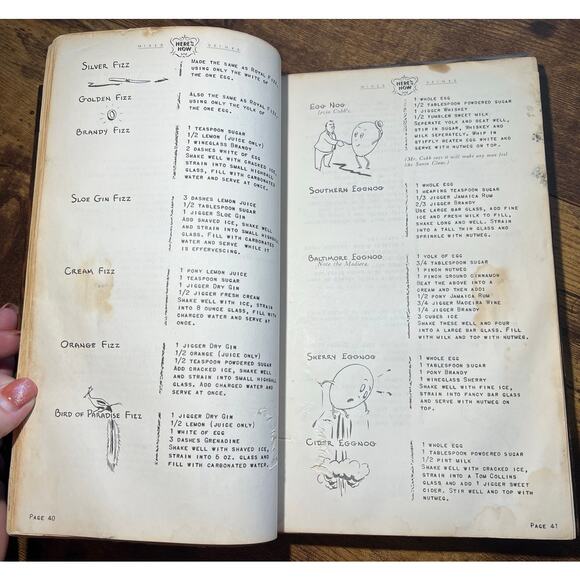 MIXED
HERE'S
HOW
DRINKS
SILVER FIZZ
MADE THE SAME AS ROYAL FIZZ
USING ONLY THE WHITE OF
THE ONE EGG.
GOLDEN FIZZ
ALSO THE SAME AS ROYAL FIZZ
USING ONLY THE YOLK OF
THE ONE EGG.
BRANDY FIZZ
1 TEASPOON SUGAR
1/2 LEMON (JUICE ONLY)
1 WINEGLASS BRANDY
2 DASHES WHITE OF EGG
SHAKE WELL WITH CRACKED ICE,
STRAIN INTO SMALL HIGHBALL
GLASS, FILL WITH CARBONATED
WATER AND SERVE AT ONCE.
SLOE GIN FIZZ
3 DASHES LEMON JUICE
1/2 TABLESPOON SUGAR
1 JIGGER SLOE GIN
ADD SHAVED ICE, SHAKE WELL
AND STRAIN INTO SMALL HIGHBALL
GLASS. FILL WITH CARBONATED
WATER AND SERVE WHILE IT
IS EFFERVESCING.
CREAM FIZZ
1 PONY LEMON JUICE
1 TEASPOON SUGAR
1 JIGGER DRY GIN
1/2 JIGGER FRESH CREAM
SHAKE WELL WITH ICE, STRAIN
INTO 8 OUNCE GLASS, FILL WITH
CHARGED WATER AND SERVE AT
ONCE.
ORANGE FIZZ
1 JIGGER DRY GIN
1/2 ORANGE (JUICE ONLY)
1/2 TEASPOON POWDERED SUGAR
ADD CRACKED ICE, SHAKE WELL
AND STRAIN INTO SMALL HIGHBALL
GLASS. ADD CHARGED WATER AND
SERVE AT ONCE.
BIRD OF PARADISE FIZZ
1 JIGGER DRY GIN
1/2 LEMON (JUICE ONLY)
1 WHITE OF EGG
3 DASHES GRENADINE
SHAKE WELL WITH SHAVED ICE,
STRAIN INTO 6 OZ. GLASS AND
FILL WITH CARBONATED WATER.
PAGE 40
MIXED
HERE'S
HOW
DRINKS
EGG NOG
Irvin Cobb's.
1 WHOLE EGG
1/2 TABLESPOON POWDERED SUGAR
1 JIGGER WHISKEY
1/2 TUMBLER SWEET MILK
SEPERATE YOLK AND BEAT WELL,
STIR IN SUGAR, WHISKEY AND
MILK SEPERATELY. WHIP IN
STIFFLY BEATEN EGG WHITE AND
SERVE WITH NUTMEG ON TOP.
(Mr. Cobb says it will make any man feel
like Santa Claus.)
SOUTHERN EGGNOG
1 WHOLE EGG
1 HEAPING TEASPOON SUGAR
1/3 JIGGER JAMAICA RUM
2/3 JIGGER BRANDY
USE LARGE BAR GLASS, ADD FINE
ICE AND FRESH MILK TO FILL,
SHAKE LONG AND WELL. STRAIN
INTO A TALL THIN GLASS AND
SPRINKLE WITH NUTMEG.
BALTIMORE EGGNOG
Note the Madiera.
1 YOLK OF EGG
3/4 TABLESPOON SUGAR
1 PINCH NUTMEG
1 PINCH GROUND CINNAMON
BEAT THE ABOVE INTO A
CREAM AND THEN ADD:
1/2 PONY JAMAICA RUM
3/4 JIGGER MADEIRA WINE
1/4 JIGGER BRANDY
3 CUBES ICE
SHAKE THESE WELL AND POUR
INTO A LARGE BAR GLASS. FILL
WITH MILK AND TOP WITH NUTMEG.
SHERRY EGGNOG
1 WHOLE EGG
1 TABLESPOON SUGAR
1 PONY BRANDY
1 WINEGLASS SHERRY
SHAKE WELL WITH FINE ICE,
STRAIN INTO FANCY BAR GLASS
AND SERVE WITH NUTMEG ON
TOP.
CIDER EGGNOG
1 WHOLE EGG
1 TABLESPOON POWDERED SUGAR
1/2 PINT MILK
SHAKE WELL WITH CRACKED ICE,
STRAIN INTO A TOM COLLINS
GLASS AND ADD 1 JIGGER SWEET
CIDER. STIR WELL AND TOP WITH
NUTMEG.
PAGE 41